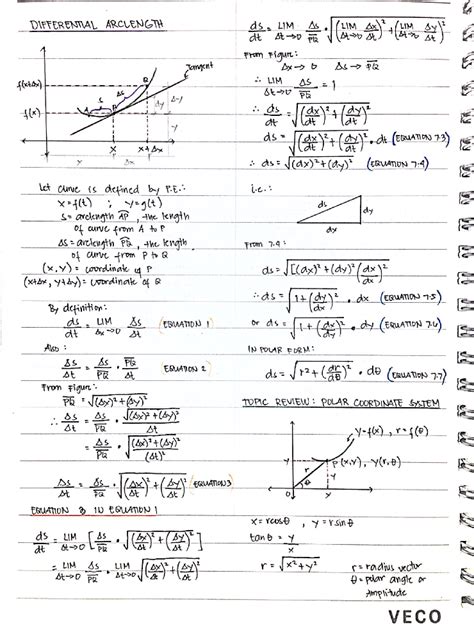 DIFFERENTIAL ARCLENGTH
Tangent
f(x+Δx)
f(x)
Q
Δs
s
A
P
dy
Δy
y
x
x+Δx
x
Δx
Let curve is defined by P.E.:
x = f(t) ; y = g(t)
s = arclength AP, the length
of curve from A to P
Δs = arclength PQ, the length
of curve from P to Q
(x, y) = coordinate of P
(x+Δx, y+Δy) = coordinate of Q
By definition:
ds/dt = LIM Δx→0 Δs/Δt (EQUATION 1)
Also:
Δs/Δt = Δs/PQ · PQ/Δt (EQUATION 2)
From Figure:
PQ = √(Δx)² + (Δy)²
∴ Δs/Δt = Δs/PQ · √(Δx)² + (Δy)²/Δt
= Δs/PQ · √(Δx)² + (Δy)²/(Δt)²
Δs/Δt = Δs/PQ · √(Δx/Δt)² + (Δy/Δt)² (EQUATION 3)
EQUATION 3 IN EQUATION 1
ds/dt = LIM Δt→0 [Δs/PQ · √(Δx/Δt)² + (Δy/Δt)²]
= LIM Δt→0 Δs/PQ · LIM Δt→0 √(Δx/Δt)² + (Δy/Δt)²
ds/dt = LIM Δt→0 Δs/PQ · √(LIM Δt→0 Δx/Δt)² + (LIM Δt→0 Δy/Δt)²
From Figure:
Δx → 0 Δs → PQ
∴ LIM Δt→0 Δs/PQ = 1
∴ ds/dt = √(dx/dt)² + (dy/dt)²
ds = √(dx/dt)² + (dy/dt)² · dt (EQUATION 7.3)
∴ ds = √(dx)² + (dy)² (EQUATION 7.4)
i.e.:
ds
dy
dx
From 7.4:
ds = √[(dx)² + (dy)²(dx/dx)²
∴ ds = √1 + (dy/dx)² · dx (EQUATION 7.5)
or ds = √1 + (dx/dy)² · dy (EQUATION 7.6)
IN POLAR FORM:
ds = √r² + (dr/dθ)² · dθ (EQUATION 7.7)
TOPIC REVIEW: POLAR COORDINATE SYSTEM
y = f(x), r = f(θ)
y
P(x,y), Y(r,θ)
r
y
θ
O
x
x = rcosθ , y = rsinθ
tanθ = y/x
r = √x² + y²
r = radius vector
θ = polar angle or
Amplitude
VECO